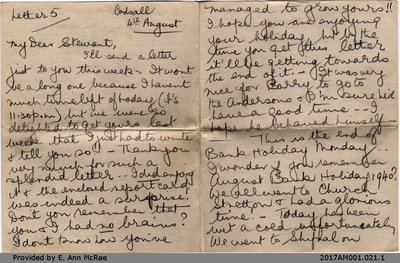 Letter 5
Codsall
4th August
My Dear Stewart,
I'll send a letter
just to you this week - It wont
be a long one because I havent
much time left of today (it's
11.30pm) but we were so
delighted to get yours last
week that I just had to write
& tell you so! - Thank you
very much for such a
splendid letter. I did enjoy
it & the enclosed report card
was indeed a surprise!
Dont you remember that
you & I had no brains?
I dont know how you've
managed to grow yours!!
I hope you are enjoying
your holiday but by the
time you get this letter
it'll be getting towards
the end of it. - It was very
nice for Barry to go to
the Andersons & I'm sure he'd
have a good time - I
hope he behaved himself
This is the end of
Bank Holiday Monday -
I wonder if you remember
August Bank Holiday 1940?
We all went to Church
Stretton & had a glorious
time! - Today has been
wet & cold unfortunately
We went to Shipal on
Provided by E. Ann McRae
2017AM001.021.1